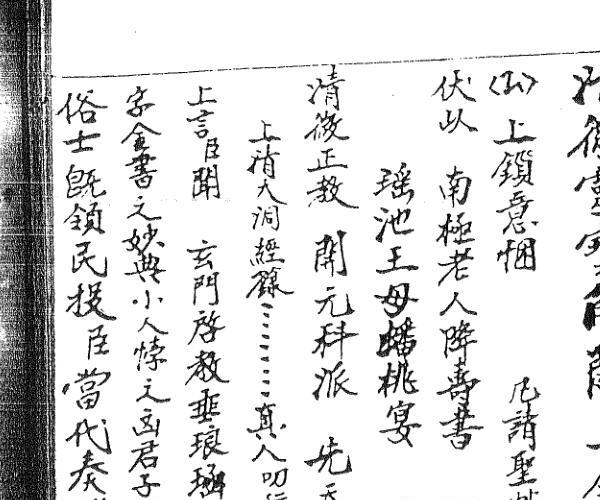 上鎖意悃 凡請聖
伏以 南極老人降壽書
瑤池王母蟠桃宴
清微正教 開元科派 先
上清大洞經籙⋯⋯⋯真人叩
上言臣聞 玄門啓教垂琅函
字金書之妙典小人悖之凶君子
俗士旣領民投臣當代奏